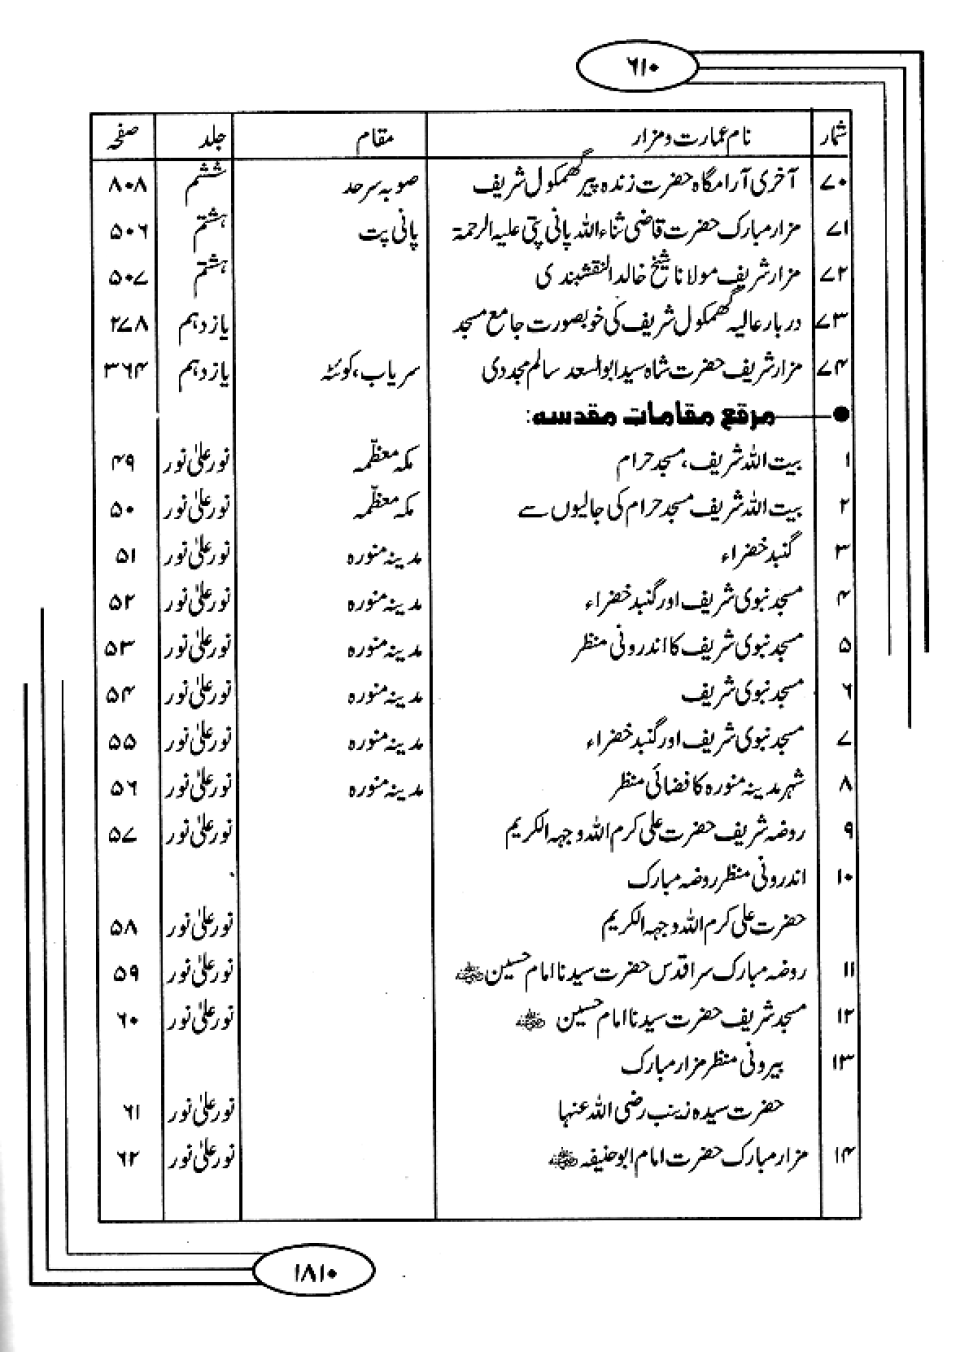 ۶۱۰
شمار نام عمارت و مزار مقام جلد صفحہ
۷۰ آخری آرامگاہ حضرت زندہ پیر گھمکول شریف صوبہ سرحد ششم ۸۰۸
۷۱ مزار مبارک حضرت قاضی ثناء اللہ پانی پتی علیہ الرحمۃ پانی پت ہشتم ۵۰۶
۷۲ مزار شریف مولانا شیخ خالد النقشبندی ہشتم ۵۰۷
۷۳ دربار عالیہ گھمکول شریف کی خوبصورت جامع مسجد یازدہم ۲۷۸
۷۴ مزار شریف حضرت شاہ سید ابو السعد سالم مجددی سریاب، کوئٹہ یازدہم ۳۶۴
● مرقع مقامات مقدسہ:
۱ بیت اللہ شریف، مسجد حرام مکہ معظّمہ نور علیٰ نور ۴۹
۲ بیت اللہ شریف مسجد حرام کی جالیوں سے مکہ معظّمہ نور علیٰ نور ۵۰
۳ گنبد خضراء مدینہ منورہ نور علیٰ نور ۵۱
۴ مسجد نبوی شریف اور گنبد خضراء مدینہ منورہ نور علیٰ نور ۵۲
۵ مسجد نبوی شریف کا اندرونی منظر مدینہ منورہ نور علیٰ نور ۵۳
۶ مسجد نبوی شریف مدینہ منورہ نور علیٰ نور ۵۴
۷ مسجد نبوی شریف اور گنبد خضراء مدینہ منورہ نور علیٰ نور ۵۵
۸ شہر مدینہ منورہ کا فضائی منظر مدینہ منورہ نور علیٰ نور ۵۶
۹ روضہ شریف حضرت علی کرم اللہ وجہہ الکریم نور علیٰ نور ۵۷
۱۰ اندرونی منظر روضہ مبارک
حضرت علی کرم اللہ وجہہ الکریم نور علیٰ نور ۵۸
۱۱ روضہ مبارک سر اقدس حضرت سیدنا امام حسین ؓ نور علیٰ نور ۵۹
۱۲ مسجد شریف حضرت سیدنا امام حسین ؓ نور علیٰ نور ۶۰
۱۳ بیرونی منظر مزار مبارک
حضرت سیدہ زینب رضی اللہ عنہا نور علیٰ نور ۶۱
۱۴ مزار مبارک حضرت امام ابو حنیفہ ؓ نور علیٰ نور ۶۲
۱۸۱۰